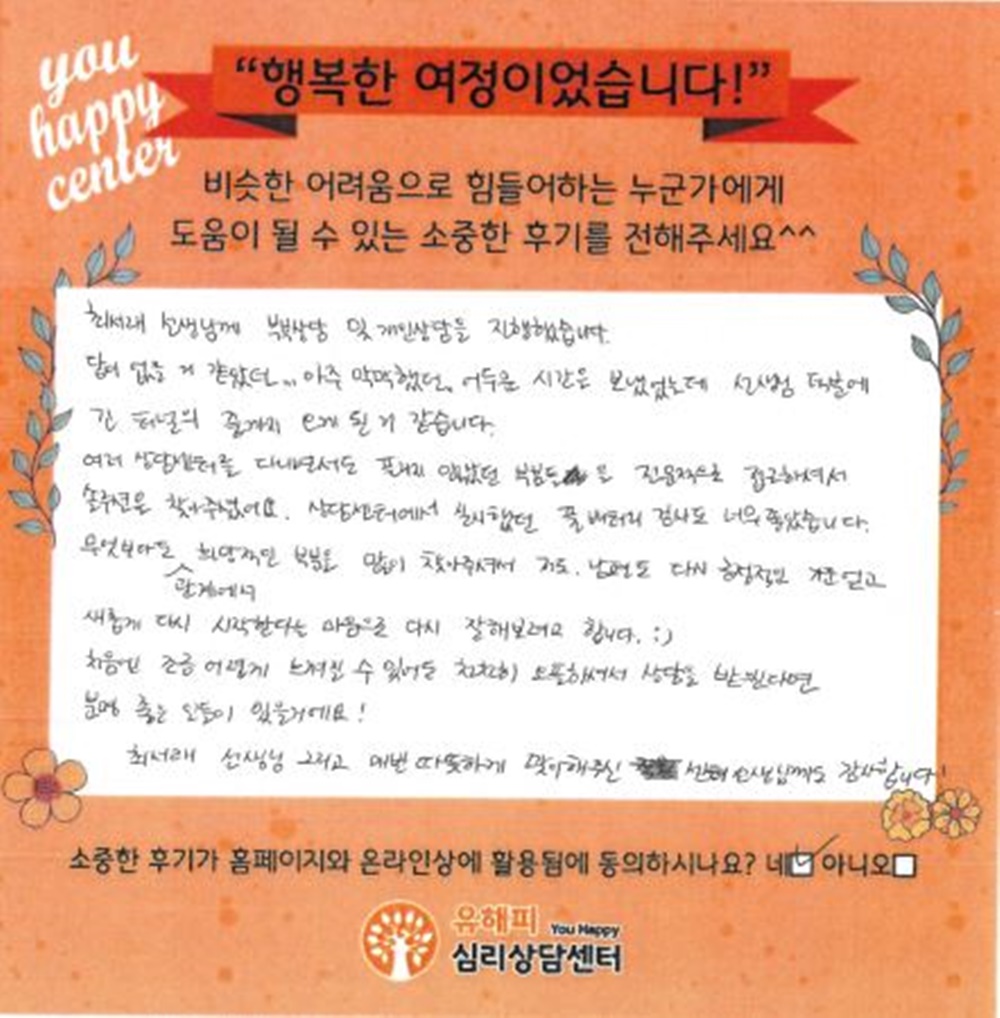 you
happy
center
“행복한 여정이었습니다!”
비슷한 어려움으로 힘들어하는 누군가에게
도움이 될 수 있는 소중한 후기를 전해주세요^^
최서래 선생님께 부부상담 및 개인상담을 진행했습니다.
답이 없을 거 같았던... 아주 막막했던, 어두운 시간을 보냈었는데 선생님 덕분에
긴 터널의 끝까지 오게 된 거 같습니다.
여러 상담센터를 다니면서도 풀리지 않았던 부분들을 전문적으로 접근하셔서
솔루션을 찾아주셨어요. 상담센터에서 실시했던 풀배터리 검사도 너무 좋았습니다.
무엇보다도 관계에서 희망적인 부분을 많이 찾아주셔서 저도, 남편도 다시 긍정적인 힘을 얻고
새롭게 다시 시작한다는 마음으로 다시 잘해보려고 합니다. :)
처음엔 조금 어렵게 느껴질 수 있어도 천천히 오픈하셔서 상담을 받으신다면
분명 좋은 일들이 있을거에요!
최서래 선생님 그리고 매번 따뜻하게 맞이해주신 선생님께도 감사합니다!
소중한 후기가 홈페이지와 온라인상에 활용됨에 동의하시나요? 네☑ 아니오☐
유해피 You Happy
심리상담센터